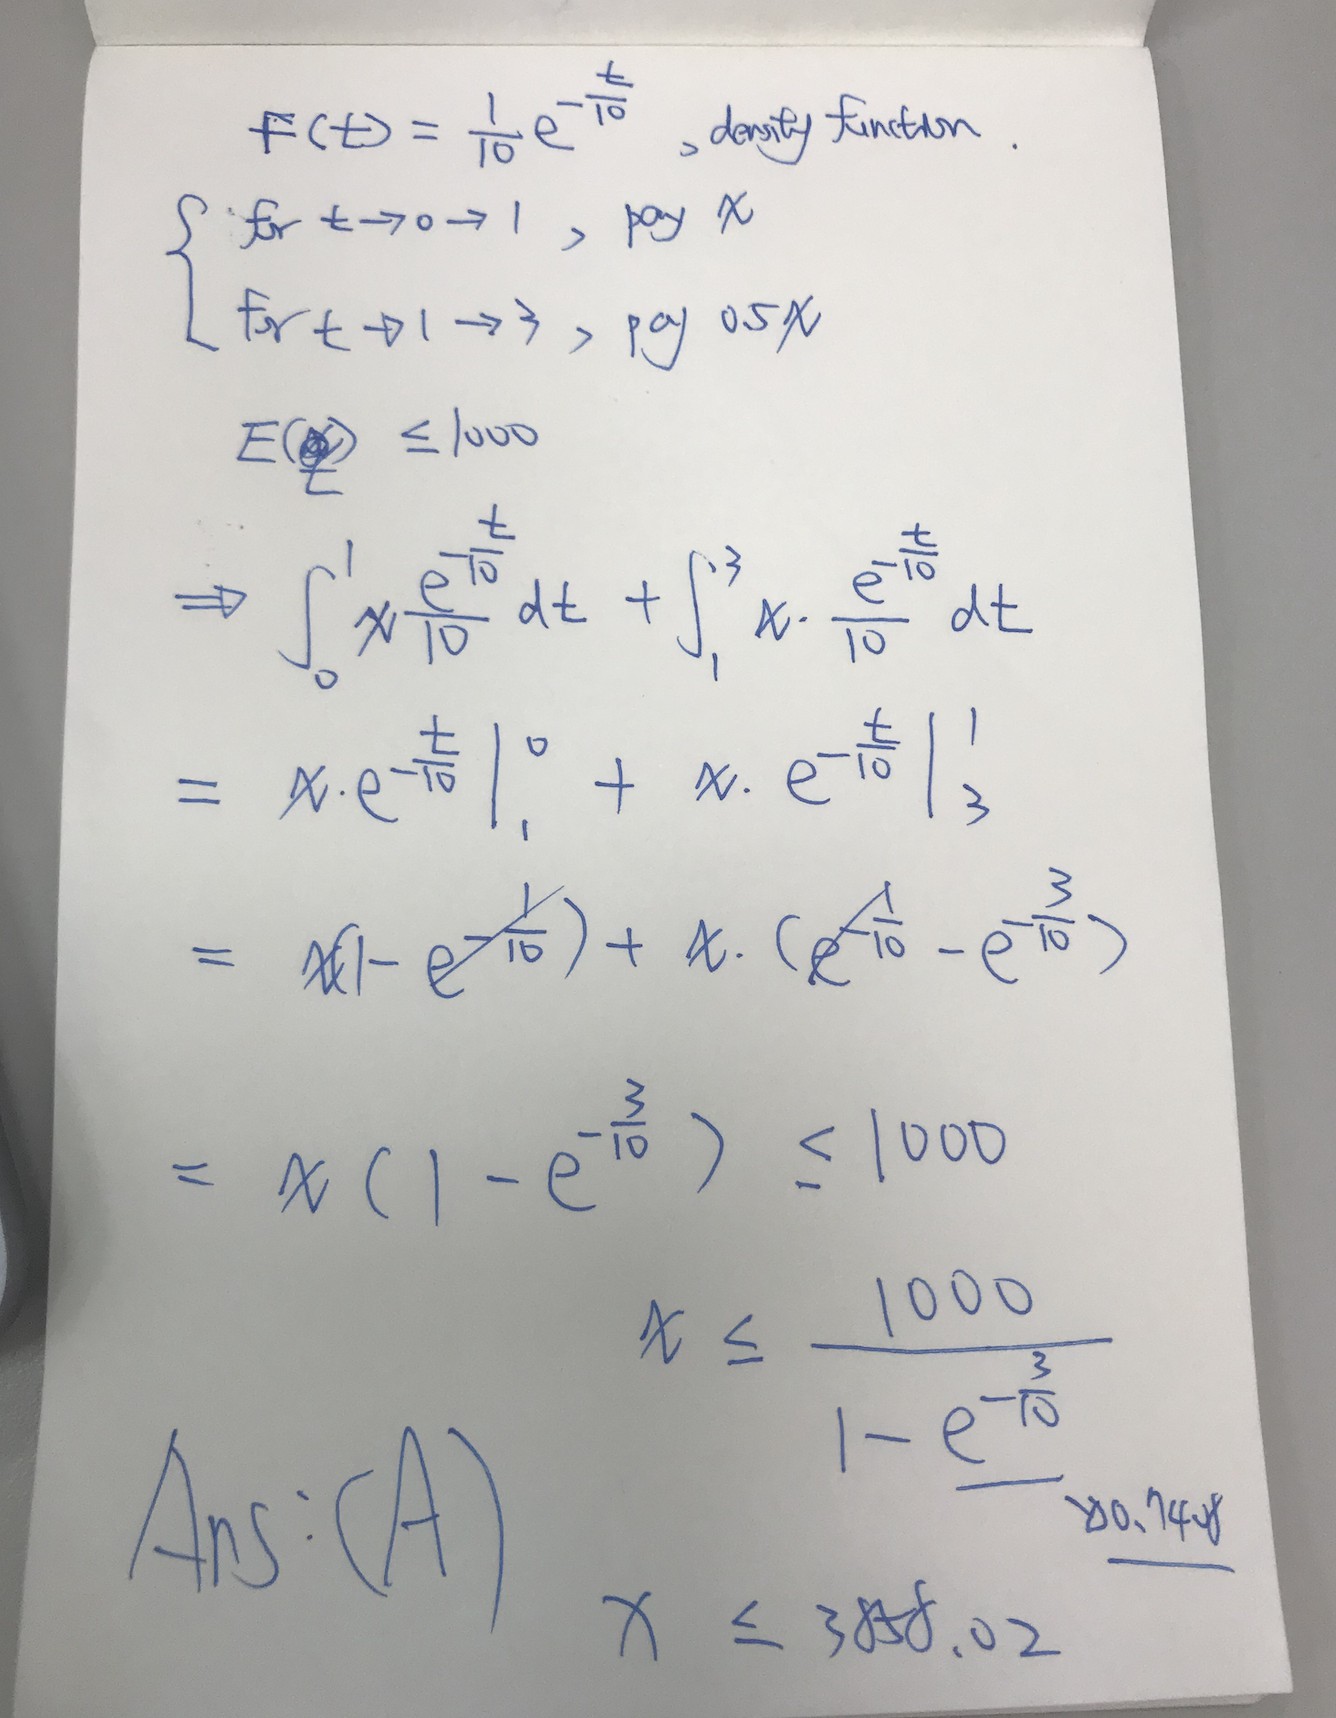 F(t) = 1/10 e^(-t/10), density function.
{ for t→0→1, pay x
for t→1→3, pay 0.5x
E(t) ≤ 1000
⇒ ∫_0^1 x e^(-t/10)/10 dt + ∫_1^3 x · e^(-t/10)/10 dt
= x·e^(-t/10) |_1^0 + x· e^(-t/10) |_3^1
= x(1 - e^(-1/10)) + x· (e^(-1/10) - e^(-3/10))
= x (1 - e^(-3/10)) ≤ 1000
x ≤ 1000 / (1 - e^(-3/10))
0.7408
Ans: (A)
x ≤ 3858.02